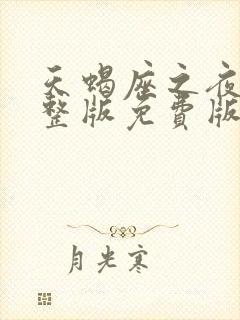 天蝎座之夜
整版免费版
月光寒